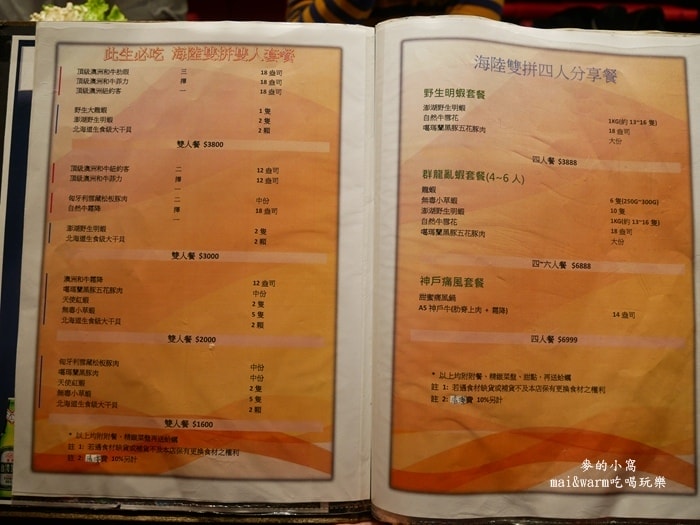 此生必吃 海陸雙拼雙人套餐
頂級澳洲和牛肋眼 三 18 盎司
頂級澳洲和牛菲力 擇 18 盎司
頂級澳洲紐約客 一 18 盎司
野生大龍蝦 1 隻
澎湖野生明蝦 2 隻
北海道生食級大干貝 2 顆
雙人餐 $3800
頂級澳洲和牛紐約客 二 12 盎司
頂級澳洲和牛菲力 擇 12 盎司
一
匈牙利國藏松板豚肉 二 中份
自然牛霜降 擇 18 盎司
一
澎湖野生明蝦 2 隻
北海道生食級大干貝 2 顆
雙人餐 $3000
澳洲和牛霜降 12 盎司
噶瑪蘭黑豚五花豚肉 中份
天使紅蝦 2 隻
無毒小草蝦 5 隻
北海道生食級大干貝 2 顆
雙人餐 $2000
匈牙利國藏松板豚肉 中份
噶瑪蘭黑豚肉 中份
天使紅蝦 2 隻
無毒小草蝦 5 隻
北海道生食級大干貝 2 顆
雙人餐 $1600
* 以上均附附餐、精緻菜盤再送蛤蠣
註 1: 若遇食材缺貨或補貨不及本店保有更換食材之權利
註 2: 費 10%另計
海陸雙拼四人分享餐
野生明蝦套餐
澎湖野生明蝦 1KG(約 13~16 隻)
自然牛雪花 18 盎司
噶瑪蘭黑豚五花豚肉 大份
四人餐 $3888
群龍亂蝦套餐(4~6 人)
龍蝦 6 隻(250G~300G)
無毒小草蝦 10 隻
澎湖野生明蝦 1KG(約 13~16 隻)
自然牛雪花 18 盎司
噶瑪蘭黑豚五花豚肉 大份
四~六人餐 $6888
神戶痛風套餐
甜蜜痛風鍋
A5 神戶牛(肋脊上肉 + 霜降) 14 盎司
四人餐 $6999
* 以上均附附餐、精緻菜盤、甜點，再送蛤蠣
註 1: 若遇食材缺貨或補貨不及本店保有更換食材之權利
註 2: 費 10%另計
麥的小窩
mai&warm吃喝玩樂